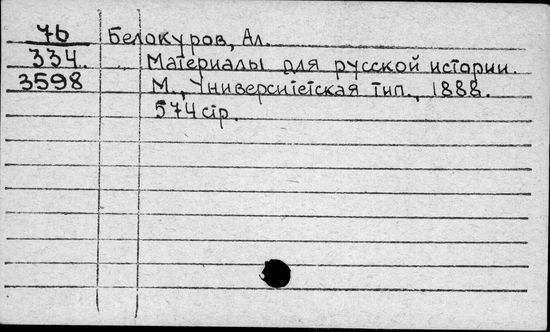 7б Белокуров, Ал.
334. Материалы для русской истории.
3598 М., Университетская тип., 1888.
574 стр.